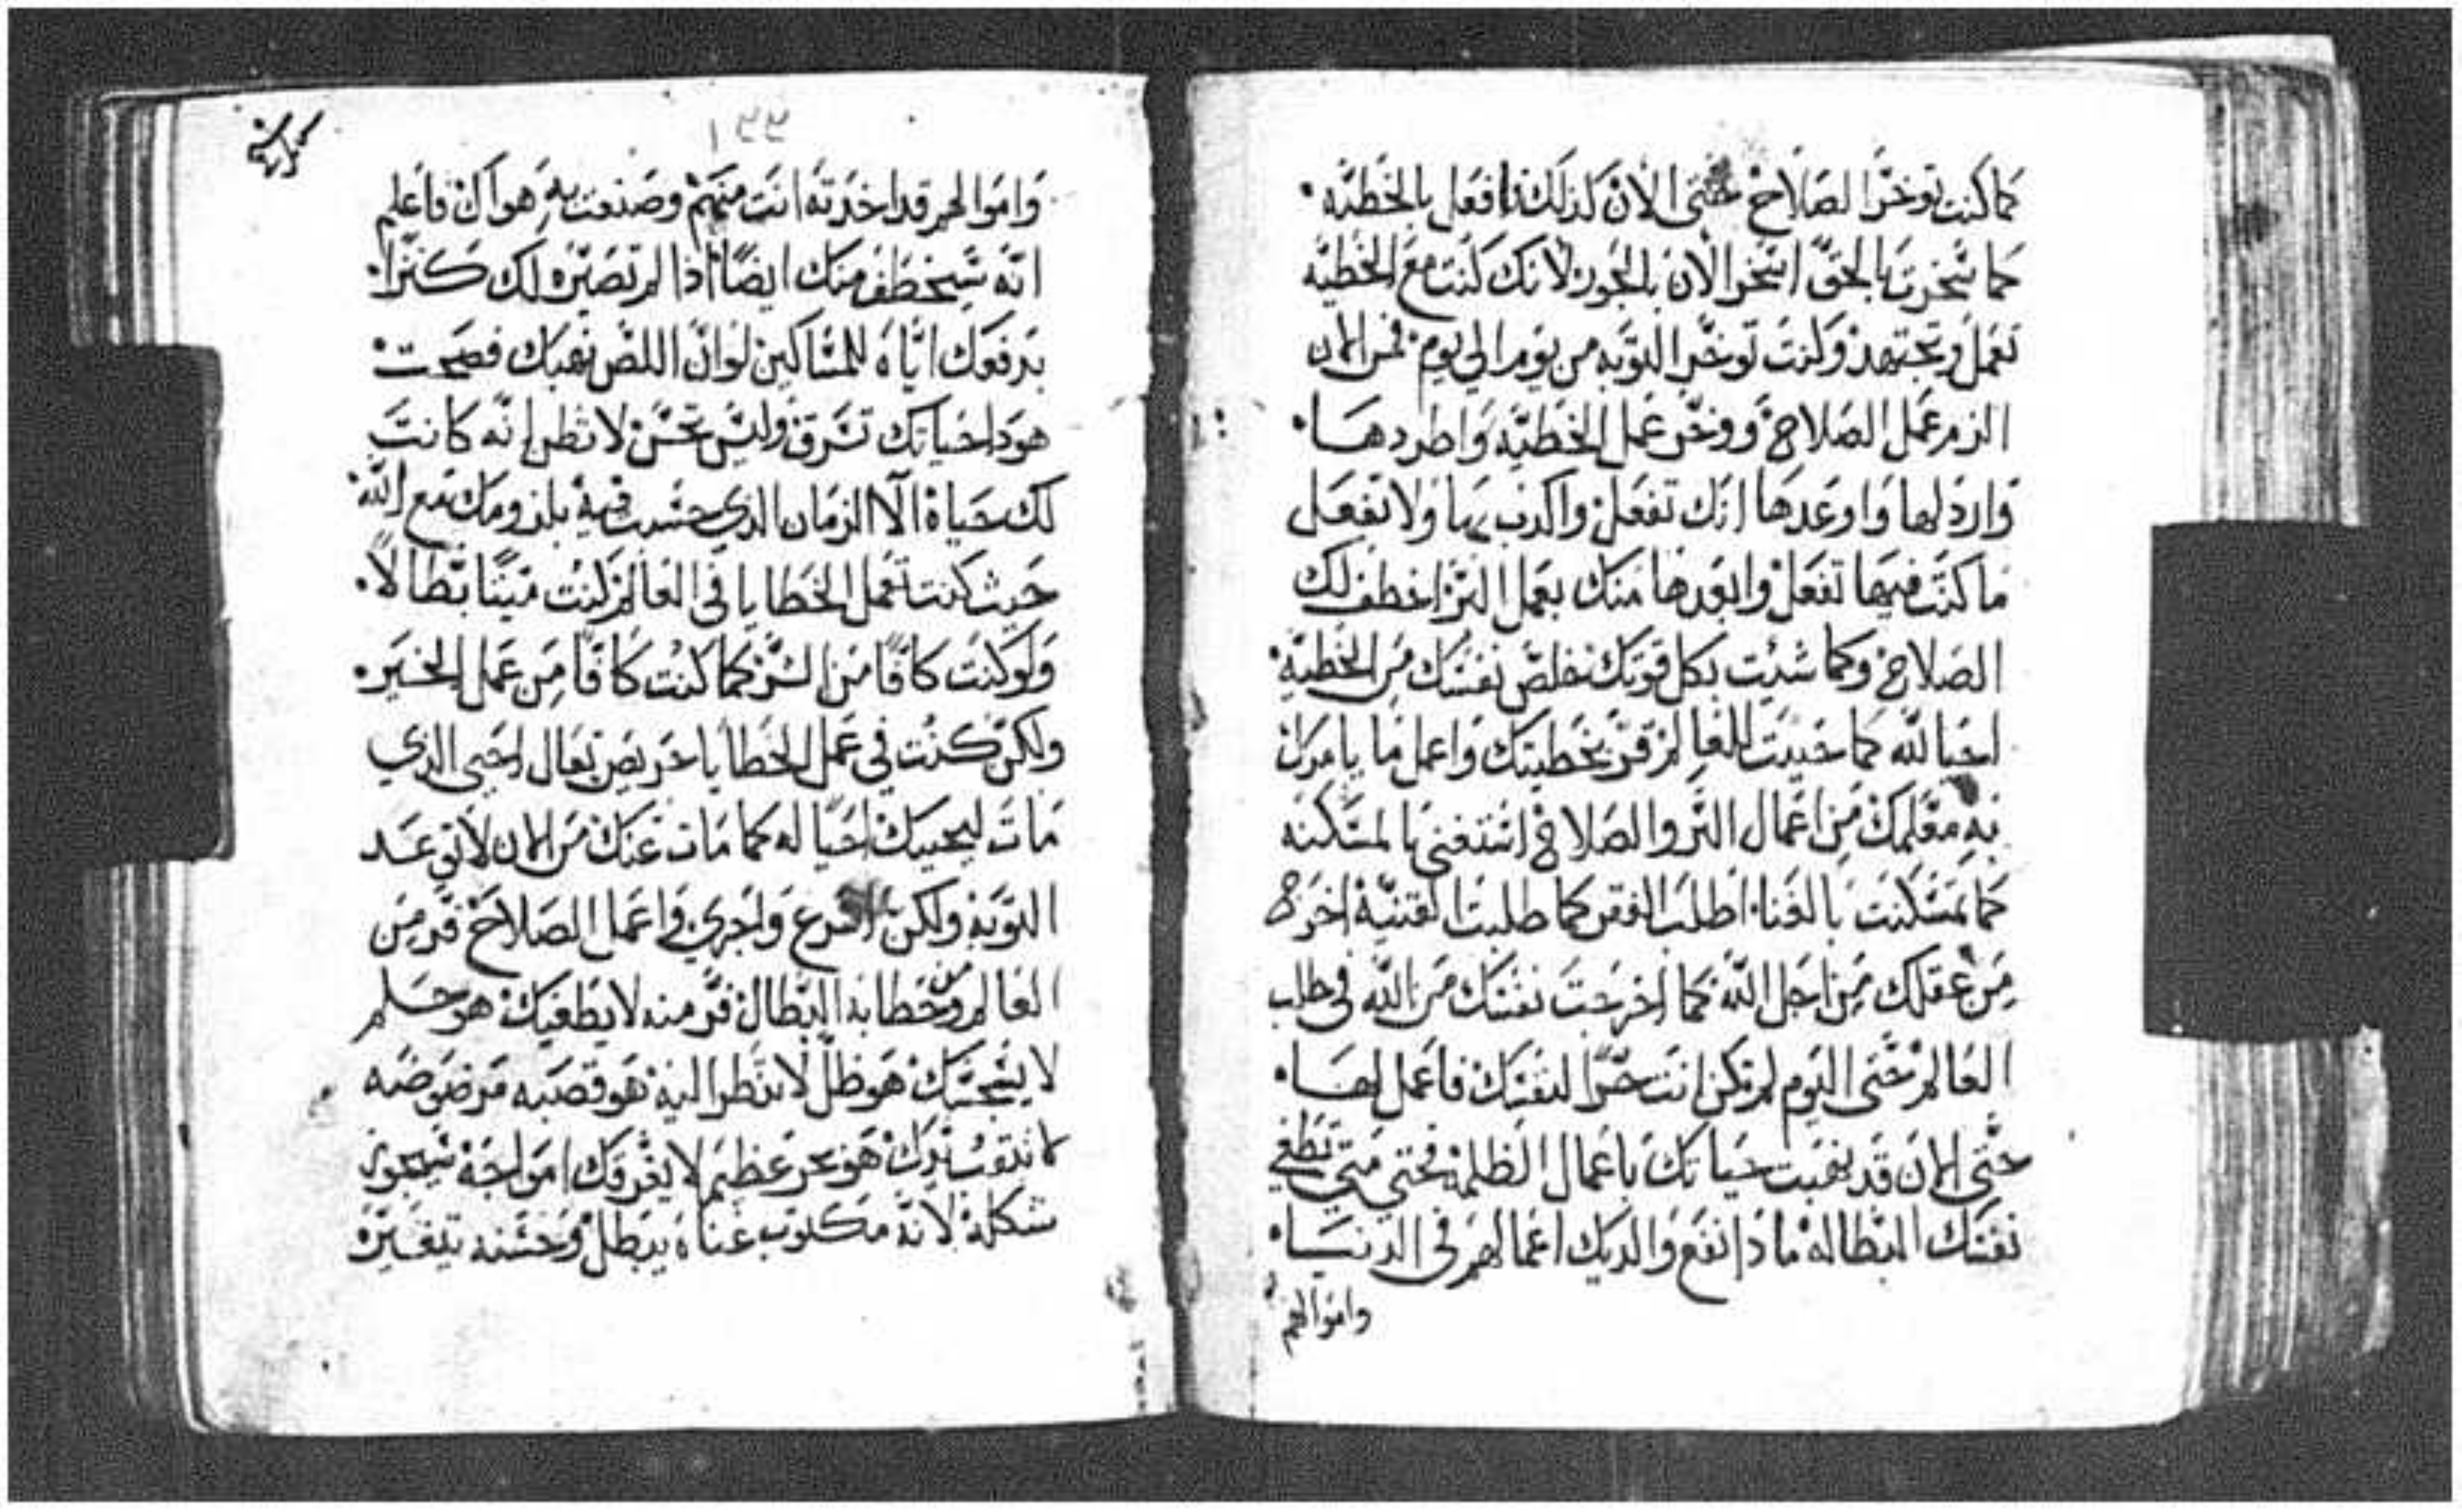 كما كنت توخر الصلاح حتى الان كذلك افعل بالخطيه
كما سخرت بالحق اسخر الان بالجور لانك كنت مع الخطيه
تعمل وتجتهد وكنت توخر التوبه من يوم الي يوم فمن الان
الزم عمل الصلاح ووخر عمل الخطيه واطردها
وارد لها واوعدها انك تفعل واكذب بها ولا تفعل
ما كنت فيها تفعل وابعدها منك بعمل البر اخطف لك
الصلاح وكما شيت بكل قوتك خلص نفسك من الخطية
احيا لله كما حييت للعالم قر بخطيتك واعمل ما يامرك
به معلمك من اعمال البر والصلاح استغني بالمسكنه
كما تمسكنت بالغنا اطلب الفقر كما طلبت القنيه اخرج
من عقلك من اجل الله كما اخرجت نفسك من الله في طلب
العالم حتى اليوم لم تكن انت حرا لنفسك فاعمل لها
حتى الان قد نهبت حياتك باعمال الظلمة فحتي متي تطغي
نفسك البطاله ماذا نفع والديك اعمالهم في الدنيا
واموالهم
١٩٩
واموالهم قد اخذته انت منهم وصنعت به هواك فاعلم
انه سيخطف منك ايضا اذا لم تصيره لك كنزا
بدفعك اياه للمساكين لو ان اللص نهبك فصحت
هوذا حياتك تسرق وليس تحس لا تظن انه كانت
لك حياة الا الزمان الذي حسبت فيه بلزومك مع الله
حيث كنت تعمل الخطايا في العالم كنت ميتا بطالا
ولو كنت كافا من الشر كما كنت كافا من عمل الخير
ولكن كنت في عمل الخطايا حريص تعال احيي الذي
مات ليحييك احيا له كما مات عنك من الان لا توعد
التوبة ولكن اسرع واجري واعمل الصلاح فر من
العالم ومن خطابه البطال فر منه لا يطغيك هو حلم
لا يسجسك هو ظل لا تنظر اليه هو قصبه مرضوضه
لا تتوسدك هو بحر عظيم لا يغرقك امواجه
شكله لانه مكتوب غناه يبطل وحسنه يتغير